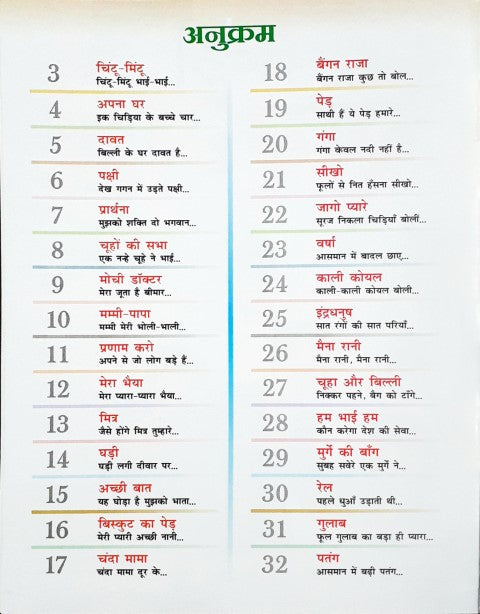 अनुक्रम
3 चिंटू-मिंटू
चिंटू-मिंटू भाई-भाई...
4 अपना घर
इक चिड़िया के बच्चे चार...
5 दावत
बिल्ली के घर दावत है...
6 पक्षी
देख गगन में उड़ते पक्षी...
7 प्रार्थना
मुझको शक्ति दो भगवान...
8 चूहों की सभा
एक नन्हे चूहे ने भाई...
9 मोची डॉक्टर
मेरा जूता है बीमार...
10 मम्मी-पापा
मम्मी मेरी भोली-भाली...
11 प्रणाम करो
अपने से जो लोग बड़े हैं...
12 मेरा भैया
मेरा प्यारा-प्यारा भैया...
13 मित्र
जैसे होंगे मित्र तुम्हारे...
14 घड़ी
घड़ी लगी दीवार पर...
15 अच्छी बात
यह घोड़ा है मुझको भाता...
16 बिस्कुट का पेड़
मेरी प्यारी अच्छी नानी...
17 चंदा मामा
चंदा मामा दूर के...
18 बैंगन राजा
बैंगन राजा कुछ तो बोल...
19 पेड़
साथी हैं ये पेड़ हमारे...
20 गंगा
गंगा केवल नदी नहीं है...
21 सीखो
फूलों से नित हँसना सीखो...
22 जागो प्यारे
सूरज निकला चिड़ियाँ बोलीं...
23 वर्षा
आसमान में बादल छाए...
24 काली कोयल
काली-काली कोयल बोली...
25 इंद्रधनुष
सात रंगों की सात परियाँ...
26 मैना रानी
मैना रानी, मैना रानी...
27 चूहा और बिल्ली
निक्कर पहने, बैग को टाँगे...
28 हम भाई हम
कौन करेगा देश की सेवा...
29 मुर्गे की बाँग
सुबह सवेरे एक मुर्गे ने...
30 रेल
पहले धुआँ उड़ाती थी...
31 गुलाब
फूल गुलाब का बड़ा ही प्यारा...
32 पतंग
आसमान में बढ़ी पतंग...